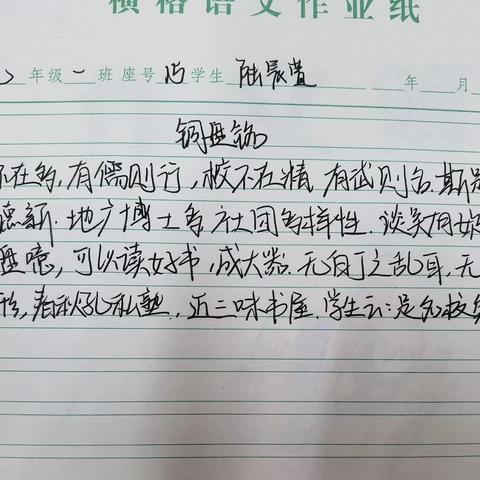 横格语文作业纸
年级一班座号15学生陆 年 月
铜盘铭
不在多,有儒则行,校不在精,有武则名.斯是
德新.地广博士多,社团多样性.谈笑用
盘 ,可以读好书,成大器.无白丁之乱耳,无
形,春秋孔私塾,近三味书屋.学生云:是名校